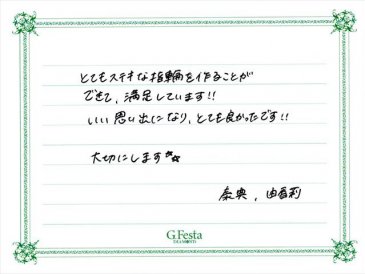 とてもステキな指輪を作ることが
できて、満足しています!!
いい思い出になり、とても良かったです!!
大切にします
泰典、由香莉
G.Festa